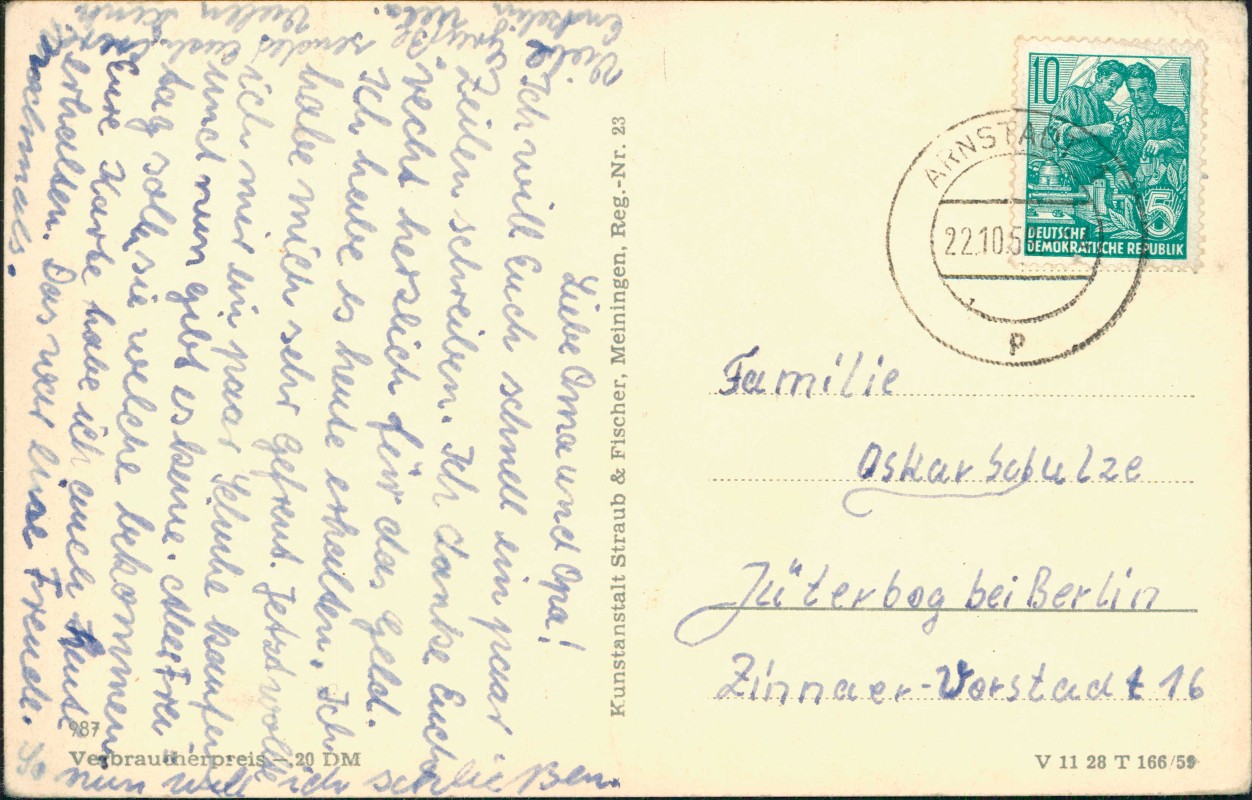 Liebe Oma und Opa!
Ich will Euch schnell ein paar
Zeilen schreiben. Ich danke Euch
recht herzlich für das Geld.
Ich habe es heute erhalten. Ich
habe mich sehr gefreut. Jetzt wollte
ich mir ein paar Schuhe kaufen
und nun gibt es keine. Am Frei
tag soll sie welche bekommen
Eure Karte habe ich auch heute
erhalten. Das war eine Freude.
nochmals.
So
nun will ich schließen.
Viele Grüße
sendet Euch Eure
Enkelin
Vielen Dank
Kunstanstalt Straub & Fischer, Meiningen, Reg.-Nr. 23
987
Verbraucherpreis –.20 DM
10
5
DEUTSCHE
DEMOKRATISCHE REPUBLIK
ARNSTADT
22.10.5
p
Familie
Oskar Schulze
Jüterbog bei Berlin
Zinnaer-Vorstadt 16
V 11 28 T 166/59